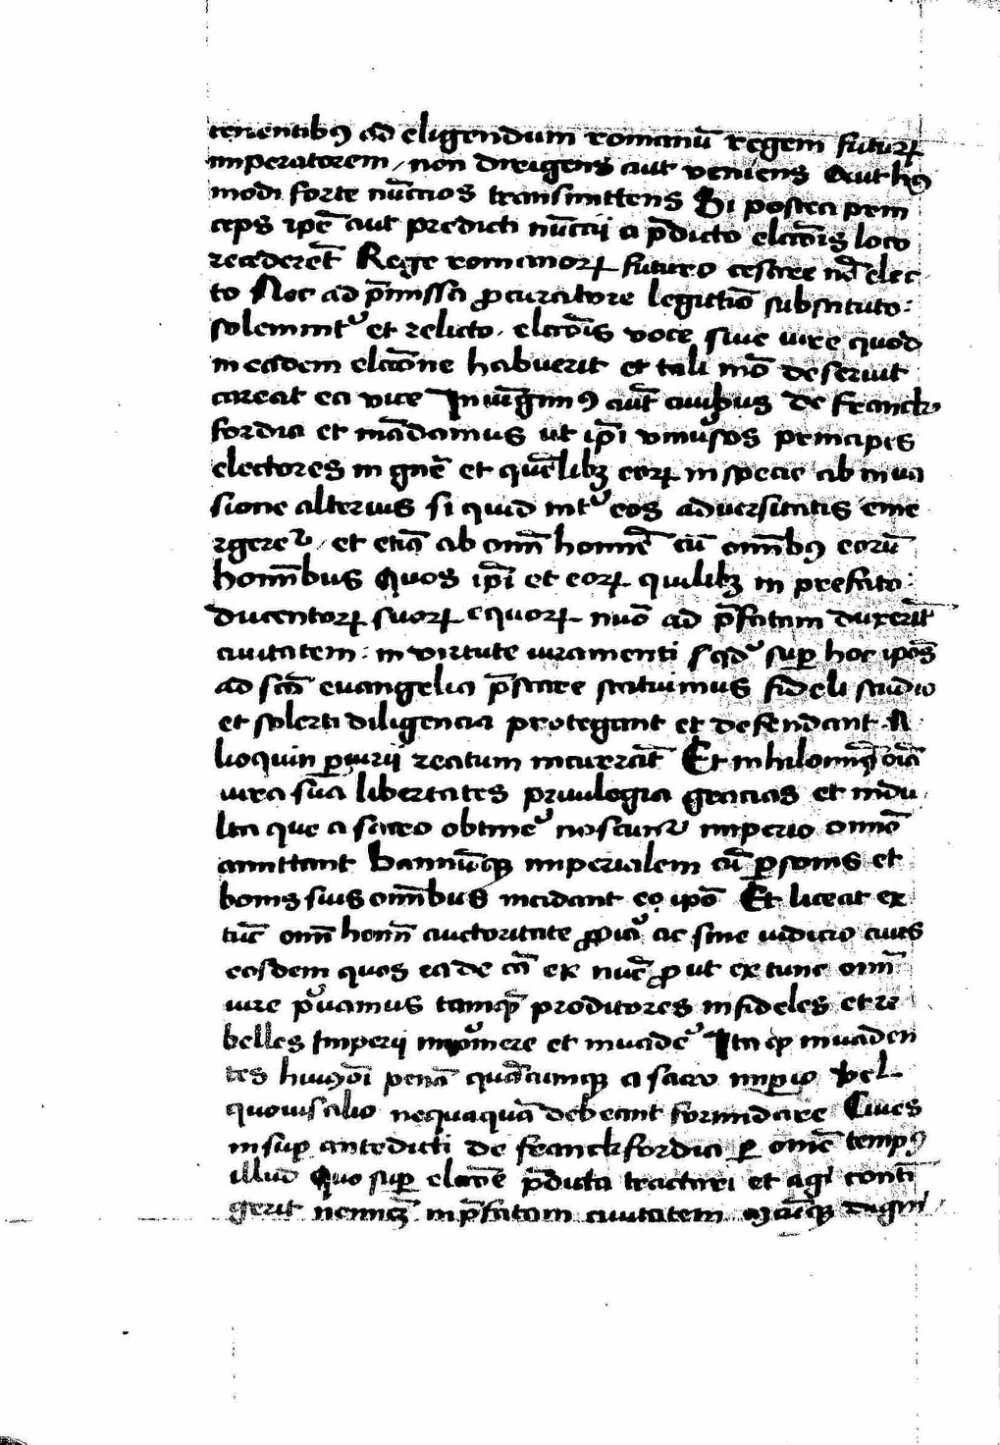 tenentibꝰ ad eligendum romanū regem futurꝝ
imperatorem / non dirigens aut veniens Aut hꝰ
modi forte nūccios transmittens Si postea prin
ceps ip̄e aut predicti nūccii a p̄dicto elcōis loco
recederēt Rege romanorꝝ futuro cesare nō elec
to Nec ad p̄missa ꝓcuratore legittīo substituto :
solemnitʼ et relicto . elcōis voce siue iure quod
in eadem elcōne habuerit et tali mō deseruit
careat ea vice Iniūgimꝰ aūt ciuibus de Franck
fordia et mādamus ut ip̄i vniuʼsos principes
electores in gn̄e et quēlibꝫ eorꝝ in specie ab inua
sione alterius si quid intʼ eos aduersitatis eme
rgereʼ / et etiā ab om̄i homīe cū om̄ibꝰ eorū
hoīībus Quos ip̄i et eorꝝ quilibꝫ in prefato :
ducentorꝝ suorꝝ equorꝝ nūo ad p̄fatam duxerīt
ciuitatem : in virtute iuramenti super hoc ip̄os
ad sc̄ā euangelia p̄stare statuimus fideli studio
et solerti diligencia protegant et defendant . A
lioquin ꝑiurii reatum incurrāt Et nihilominꝰ oīā
iura sūa libertates priuilegia gracias et indu
lta que a sacro obtineʼ noscunʼ imperio omīo
amittant Bannūqꝫ imperialem cū ꝑsonis et
bonis suis om̄ibus incidant eo ipō Et liceat ex
tūc om̄i homī auctoritate ꝓpiʼa ac sine iudicio ciues
eosdem quos eade cā ex nūc ꝓ ut ex tunc om̄i
iure pʼuamus tamqꝫ proditores infideles et re
belles Imperij et inuadeʼ Ita qꝫ inuaden
tes huiꝰmōi penā quācumqꝫ a sacro imꝑio vel
quouis alio nequaquā debeant formidare Ciues
insuꝑ antedicti de Franckfordia ꝑ omē tempꝰ
illud Quo suꝑ elcōe p̄dicta tractari et agi contī
gerit nemiēꝫ in p̄fatam ciuitatem cūqꝫ digni